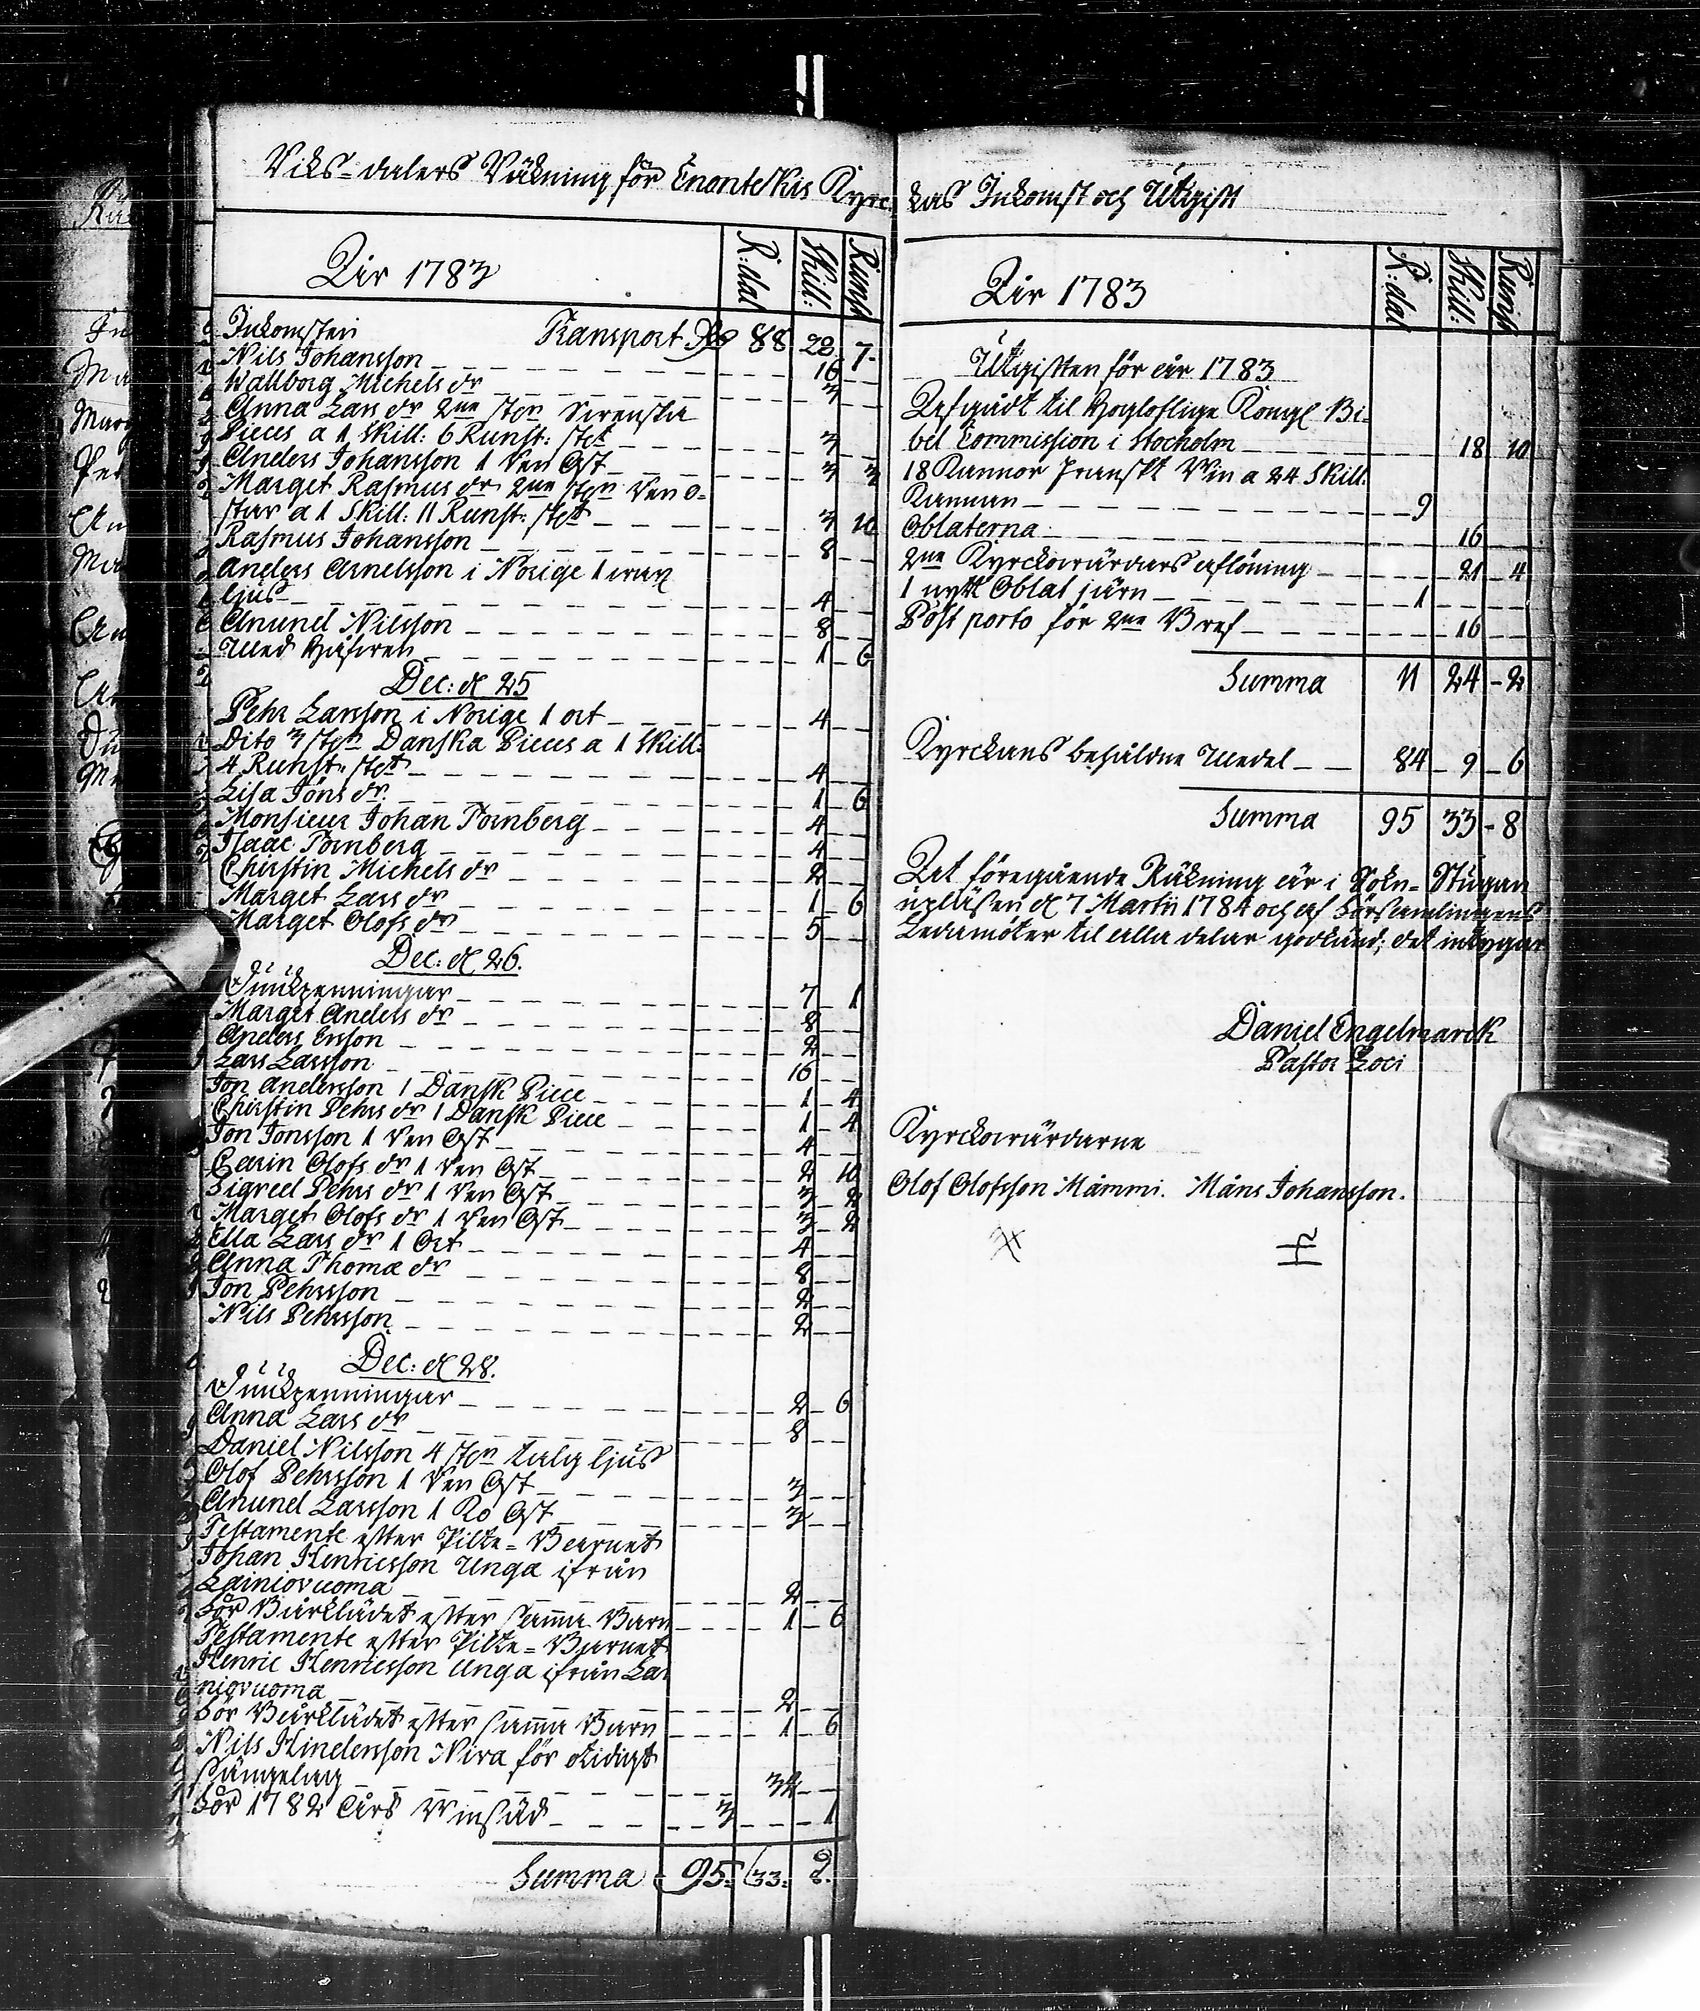 Riks-dalers Räkning för Enontekis Kyrc kas Inkomst och Utgift
År 1783 R:dal Skill: Runst
Inkomsten Transport 88 22 7
Nils Johansson 16
Wallborg Michels dr 3
Anna Lars dr 2ne stn Svenska
Pieces a 1 Skill: 6 Runst: st 3
Anders Johansson 1 Ren Ost 3 3
Marget Rasmus dr 2ne stn Ren o-
star a 1 Skill: 11 Runst: st 3 10
Rasmus Johansson 8
Anders Arnelsson i Norige 1
ljus 4
Amund Nilsson 8
Med Håfven 1 6
Dec: d 25
Pehr Larsson i Norige 1 ort 4
Dito 3 stn Danska Pieces a 1 Skill:
4 Runst: st 4
Lisa Jöns dr 1 6
Monsieur Johan Fornberg 4
Isaac Fornberg 4
Christin Michels dr 2
Marget Lars dr 1 6
Marget Olofs dr 5
Dec: d 26.
Marget Anders dr 8
Anders Ersson 2
Lars Larsson 16
Jon Andersson 1 Dansk Piece 1 4
Christin Pehrs dr 1 Dansk Piece 1 4
Jon Jonsson 1 Ren Ost 4
Carin Olofs dr 1 Ren Ost 2 10
Sigred Pehrs dr 1 Ren Ost 3 2
Marget Olofs dr 1 Ren Ost 3 2
Ella Lars dr 1 Ort 4
Anna Thomæ dr 8
Jon Pehrsson 2
Nils Pehrsson 2
Dec: d 28.
Anna Lars dr 8
Daniel Nilsson 4 stn talg ljus
Olof Pehrsson 1 Ren Ost 3
Amund Larsson 1 Ko Ost 3
Testamente efter Pilte-Barnet
Johan Henricsson Unga ifrån
Lainiovuoma 2
För Bårklädet efter samma Barn 1 6
Testamente efter Pilte-Barnet
Henric Henricsson Unga ifrån Lai
niovuoma 2
För Bårklädet efter samma Barn 1 6
Nils Hindersson Niva för otidigt
Sängelag 32
För 1782 Års Winsäd 3 1
Summa 95 33 8.
År 1783 R:dal Skill: Runst
Utgiften för år 1783
Afgådt til Högloflige Kongl Bi-
bel Commission i Stocholm 18 10
18 Kannor Franskt Win a 24 Skill:
Kannan 9
Oblaterna 16
2ne Kyrckowärdars aflöning 21 4
1 nytt Oblat järn 1
Post porto för 2ne Bref 16
Summa 11 24 2
Kyrckans behåldne Medel 84 9 6
Summa 95 33 8
At föregående Räkning är i Sokn-Stugan
upläsen d 7 Martii 1784 och af Församlingens
Ledamöter til alla delar godkänd; det intygar
Daniel Engelmarck
Pastor Loci
Kyrckowärdarne
Olof Olofsson Mämmi. Måns Johansson.